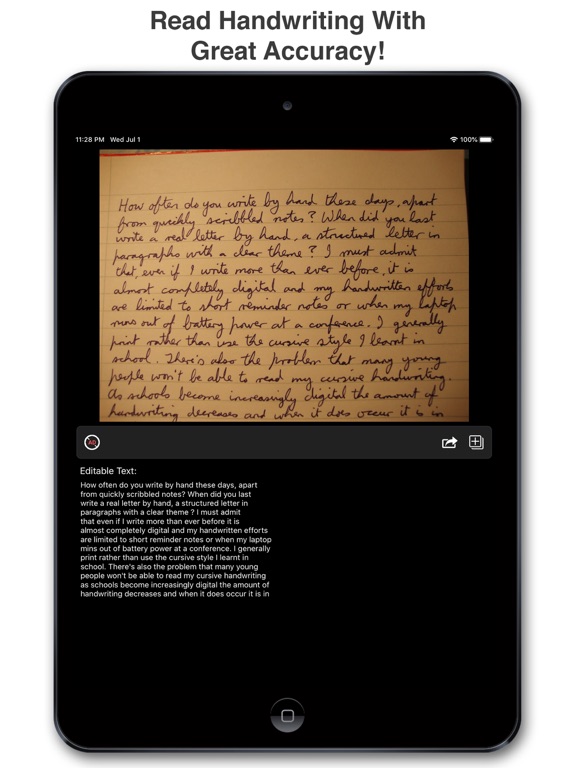 Read Handwriting With
Great Accuracy!
11:28 PM Wed Jul 1
100%
How often do you write by hand these days, apart
from quickly scribbled notes? When did you last
write a real letter by hand, a structured letter in
paragraphs with a clear theme? I must admit
that, even if I write more than ever before, it is
almost completely digital and my handwritten efforts
are limited to short reminder notes or when my laptop
runs out of battery power at a conference. I generally
print rather than use the cursive style I learnt in
school. There's also the problem that many young
people won't be able to read my cursive handwriting.
As schools become increasingly digital the amount of
handwriting decreases and when it does occur it is in
AD
Editable Text:
How often do you write by hand these days, apart
from quickly scribbled notes? When did you last
write a real letter by hand, a structured letter in
paragraphs with a clear theme ? I must admit
that even if I write more than ever before it is
almost completely digital and my handwritten efforts
are limited to short reminder notes or when my laptop
mins out of battery power at a conference. I generally
print rather than use the cursive style I learnt in
school. There's also the problem that many young
people won't be able to read my cursive handwriting
as schools become increasingly digital the amount of
handwriting decreases and when it does occur it is in